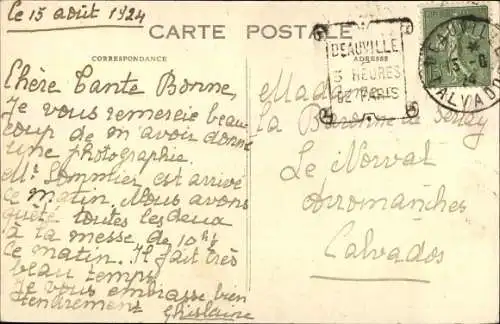 le 15 août 1924
CARTE POSTALE
CORRESPONDANCE
ADRESSE
DEAUVILLE
3 HEURES
DE PARIS
DEAUVILLE
15-8
24
CALVADOS
Chère Tante Bonne,
Je vous remercie beau
coup de m'avoir donné
une photographie.
Mr Sommier est arrivé
ce matin. Nous avons
quêté toutes les deux
à la messe de 10h½
ce matin. Il fait très
beau temps
Je vous embrasse bien
tendrement
Ghislaine
Madame
La Baronne de
Le Norvat
Arromanches
Calvados